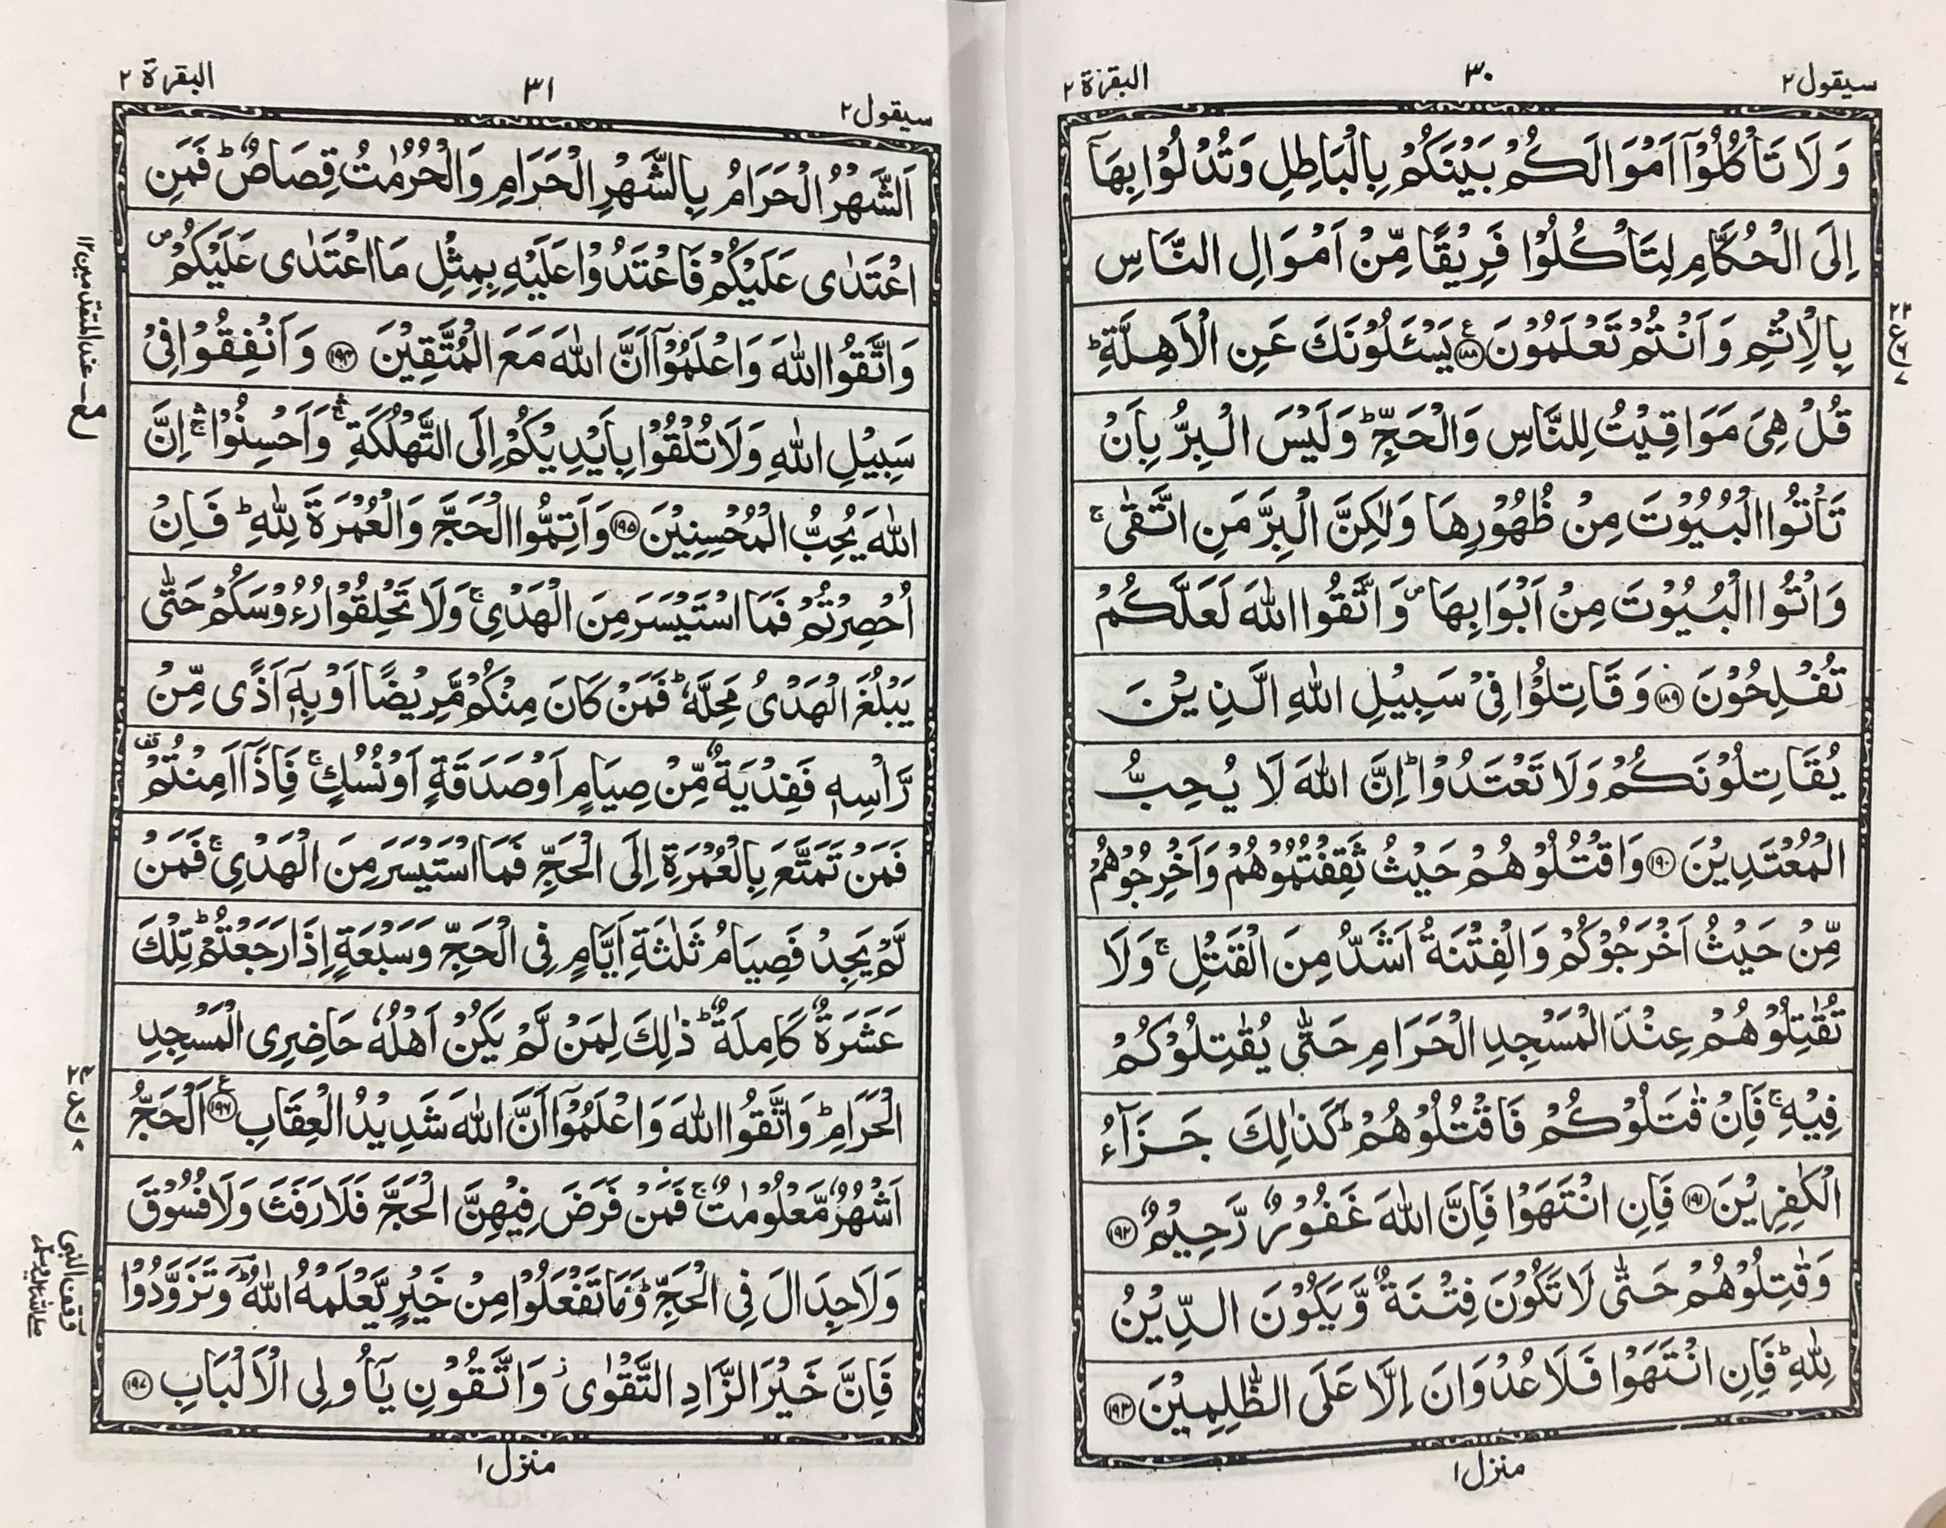 سيقول ٢
٣٠
البقرة ٢
وَلَا تَاْكُلُوْۤا اَمْوَالَكُمْ بَيْنَكُمْ بِالْبَاطِلِ وَتُدْلُوْا بِهَاۤ
اِلَى الْحُكَّامِ لِتَاْكُلُوْا فَرِيْقًا مِّنْ اَمْوَالِ النَّاسِ
بِالْاِثْمِ وَاَنْتُمْ تَعْلَمُوْنَ ࣖ ﴿١٨٨﴾ يَسْـَٔلُوْنَكَ عَنِ الْاَهِلَّةِ ؕ
قُلْ هِيَ مَوَاقِيْتُ لِلنَّاسِ وَالْحَجِّ ؕ وَلَيْسَ الْبِرُّ بِاَنْ
تَاْتُوا الْبُيُوْتَ مِنْ ظُهُوْرِهَا وَلٰكِنَّ الْبِرَّ مَنِ اتَّقٰى ۚ
وَاْتُوا الْبُيُوْتَ مِنْ اَبْوَابِهَا ۪ وَاتَّقُوا اللّٰهَ لَعَلَّكُمْ
تُفْلِحُوْنَ ﴿١٨٩﴾ وَقَاتِلُوْا فِيْ سَبِيْلِ اللّٰهِ الَّذِيْنَ
يُقَاتِلُوْنَكُمْ وَلَا تَعْتَدُوْا ؕ اِنَّ اللّٰهَ لَا يُحِبُّ
الْمُعْتَدِيْنَ ﴿١٩٠﴾ وَاقْتُلُوْهُمْ حَيْثُ ثَقِفْتُمُوْهُمْ وَاَخْرِجُوْهُمْ
مِّنْ حَيْثُ اَخْرَجُوْكُمْ وَالْفِتْنَةُ اَشَدُّ مِنَ الْقَتْلِ ۚ وَلَا
تُقٰتِلُوْهُمْ عِنْدَ الْمَسْجِدِ الْحَرَامِ حَتّٰى يُقٰتِلُوْكُمْ
فِيْهِ ۚ فَاِنْ قٰتَلُوْكُمْ فَاقْتُلُوْهُمْ ؕ كَذٰلِكَ جَزَآءُ
الْكٰفِرِيْنَ ﴿١٩١﴾ فَاِنِ انْتَهَوْا فَاِنَّ اللّٰهَ غَفُوْرٌ رَّحِيْمٌ ﴿١٩٢﴾
وَقٰتِلُوْهُمْ حَتّٰى لَا تَكُوْنَ فِتْنَةٌ وَّيَكُوْنَ الدِّيْنُ
لِلّٰهِ ؕ فَاِنِ انْتَهَوْا فَلَا عُدْوَانَ اِلَّا عَلَى الظّٰلِمِيْنَ ﴿١٩٣﴾
منزل ١
سيقول ٢
٣١
البقرة ٢
اَلشَّهْرُ الْحَرَامُ بِالشَّهْرِ الْحَرَامِ وَالْحُرُمٰتُ قِصَاصٌ ؕ فَمَنِ
اعْتَدٰى عَلَيْكُمْ فَاعْتَدُوْا عَلَيْهِ بِمِثْلِ مَا اعْتَدٰى عَلَيْكُمْ ۪
وَاتَّقُوا اللّٰهَ وَاعْلَمُوْۤا اَنَّ اللّٰهَ مَعَ الْمُتَّقِيْنَ ﴿١٩٤﴾ وَاَنْفِقُوْا فِيْ
سَبِيْلِ اللّٰهِ وَلَا تُلْقُوْا بِاَيْدِيْكُمْ اِلَى التَّهْلُكَةِ ۛۚ وَاَحْسِنُوْا ۛۚ اِنَّ
اللّٰهَ يُحِبُّ الْمُحْسِنِيْنَ ﴿١٩٥﴾ وَاَتِمُّوا الْحَجَّ وَالْعُمْرَةَ لِلّٰهِ ؕ فَاِنْ
اُحْصِرْتُمْ فَمَا اسْتَيْسَرَ مِنَ الْهَدْيِ ۚ وَلَا تَحْلِقُوْا رُءُوْسَكُمْ حَتّٰى
يَبْلُغَ الْهَدْيُ مَحِلَّهٗ ؕ فَمَنْ كَانَ مِنْكُمْ مَّرِيْضًا اَوْ بِهٖۤ اَذًى مِّنْ
رَّاْسِهٖ فَفِدْيَةٌ مِّنْ صِيَامٍ اَوْ صَدَقَةٍ اَوْ نُسُكٍ ۚ فَاِذَاۤ اَمِنْتُمْ وقف
فَمَنْ تَمَتَّعَ بِالْعُمْرَةِ اِلَى الْحَجِّ فَمَا اسْتَيْسَرَ مِنَ الْهَدْيِ ۚ فَمَنْ
لَّمْ يَجِدْ فَصِيَامُ ثَلٰثَةِ اَيَّامٍ فِي الْحَجِّ وَسَبْعَةٍ اِذَا رَجَعْتُمْ ؕ تِلْكَ
عَشَرَةٌ كَامِلَةٌ ؕ ذٰلِكَ لِمَنْ لَّمْ يَكُنْ اَهْلُهٗ حَاضِرِى الْمَسْجِدِ
الْحَرَامِ ؕ وَاتَّقُوا اللّٰهَ وَاعْلَمُوْۤا اَنَّ اللّٰهَ شَدِيْدُ الْعِقَابِ ࣖ ﴿١٩٦﴾ اَلْحَجُّ
اَشْهُرٌ مَّعْلُوْمٰتٌ ۚ فَمَنْ فَرَضَ فِيْهِنَّ الْحَجَّ فَلَا رَفَثَ وَلَا فُسُوْقَ
وَلَا جِدَالَ فِي الْحَجِّ ؕ وَمَا تَفْعَلُوْا مِنْ خَيْرٍ يَّعْلَمْهُ اللّٰهُ ؔؕ وَتَزَوَّدُوْا
فَاِنَّ خَيْرَ الزَّادِ التَّقْوٰى ؗ وَاتَّقُوْنِ يٰۤاُولِى الْاَلْبَابِ ﴿١٩٧﴾
منزل ١